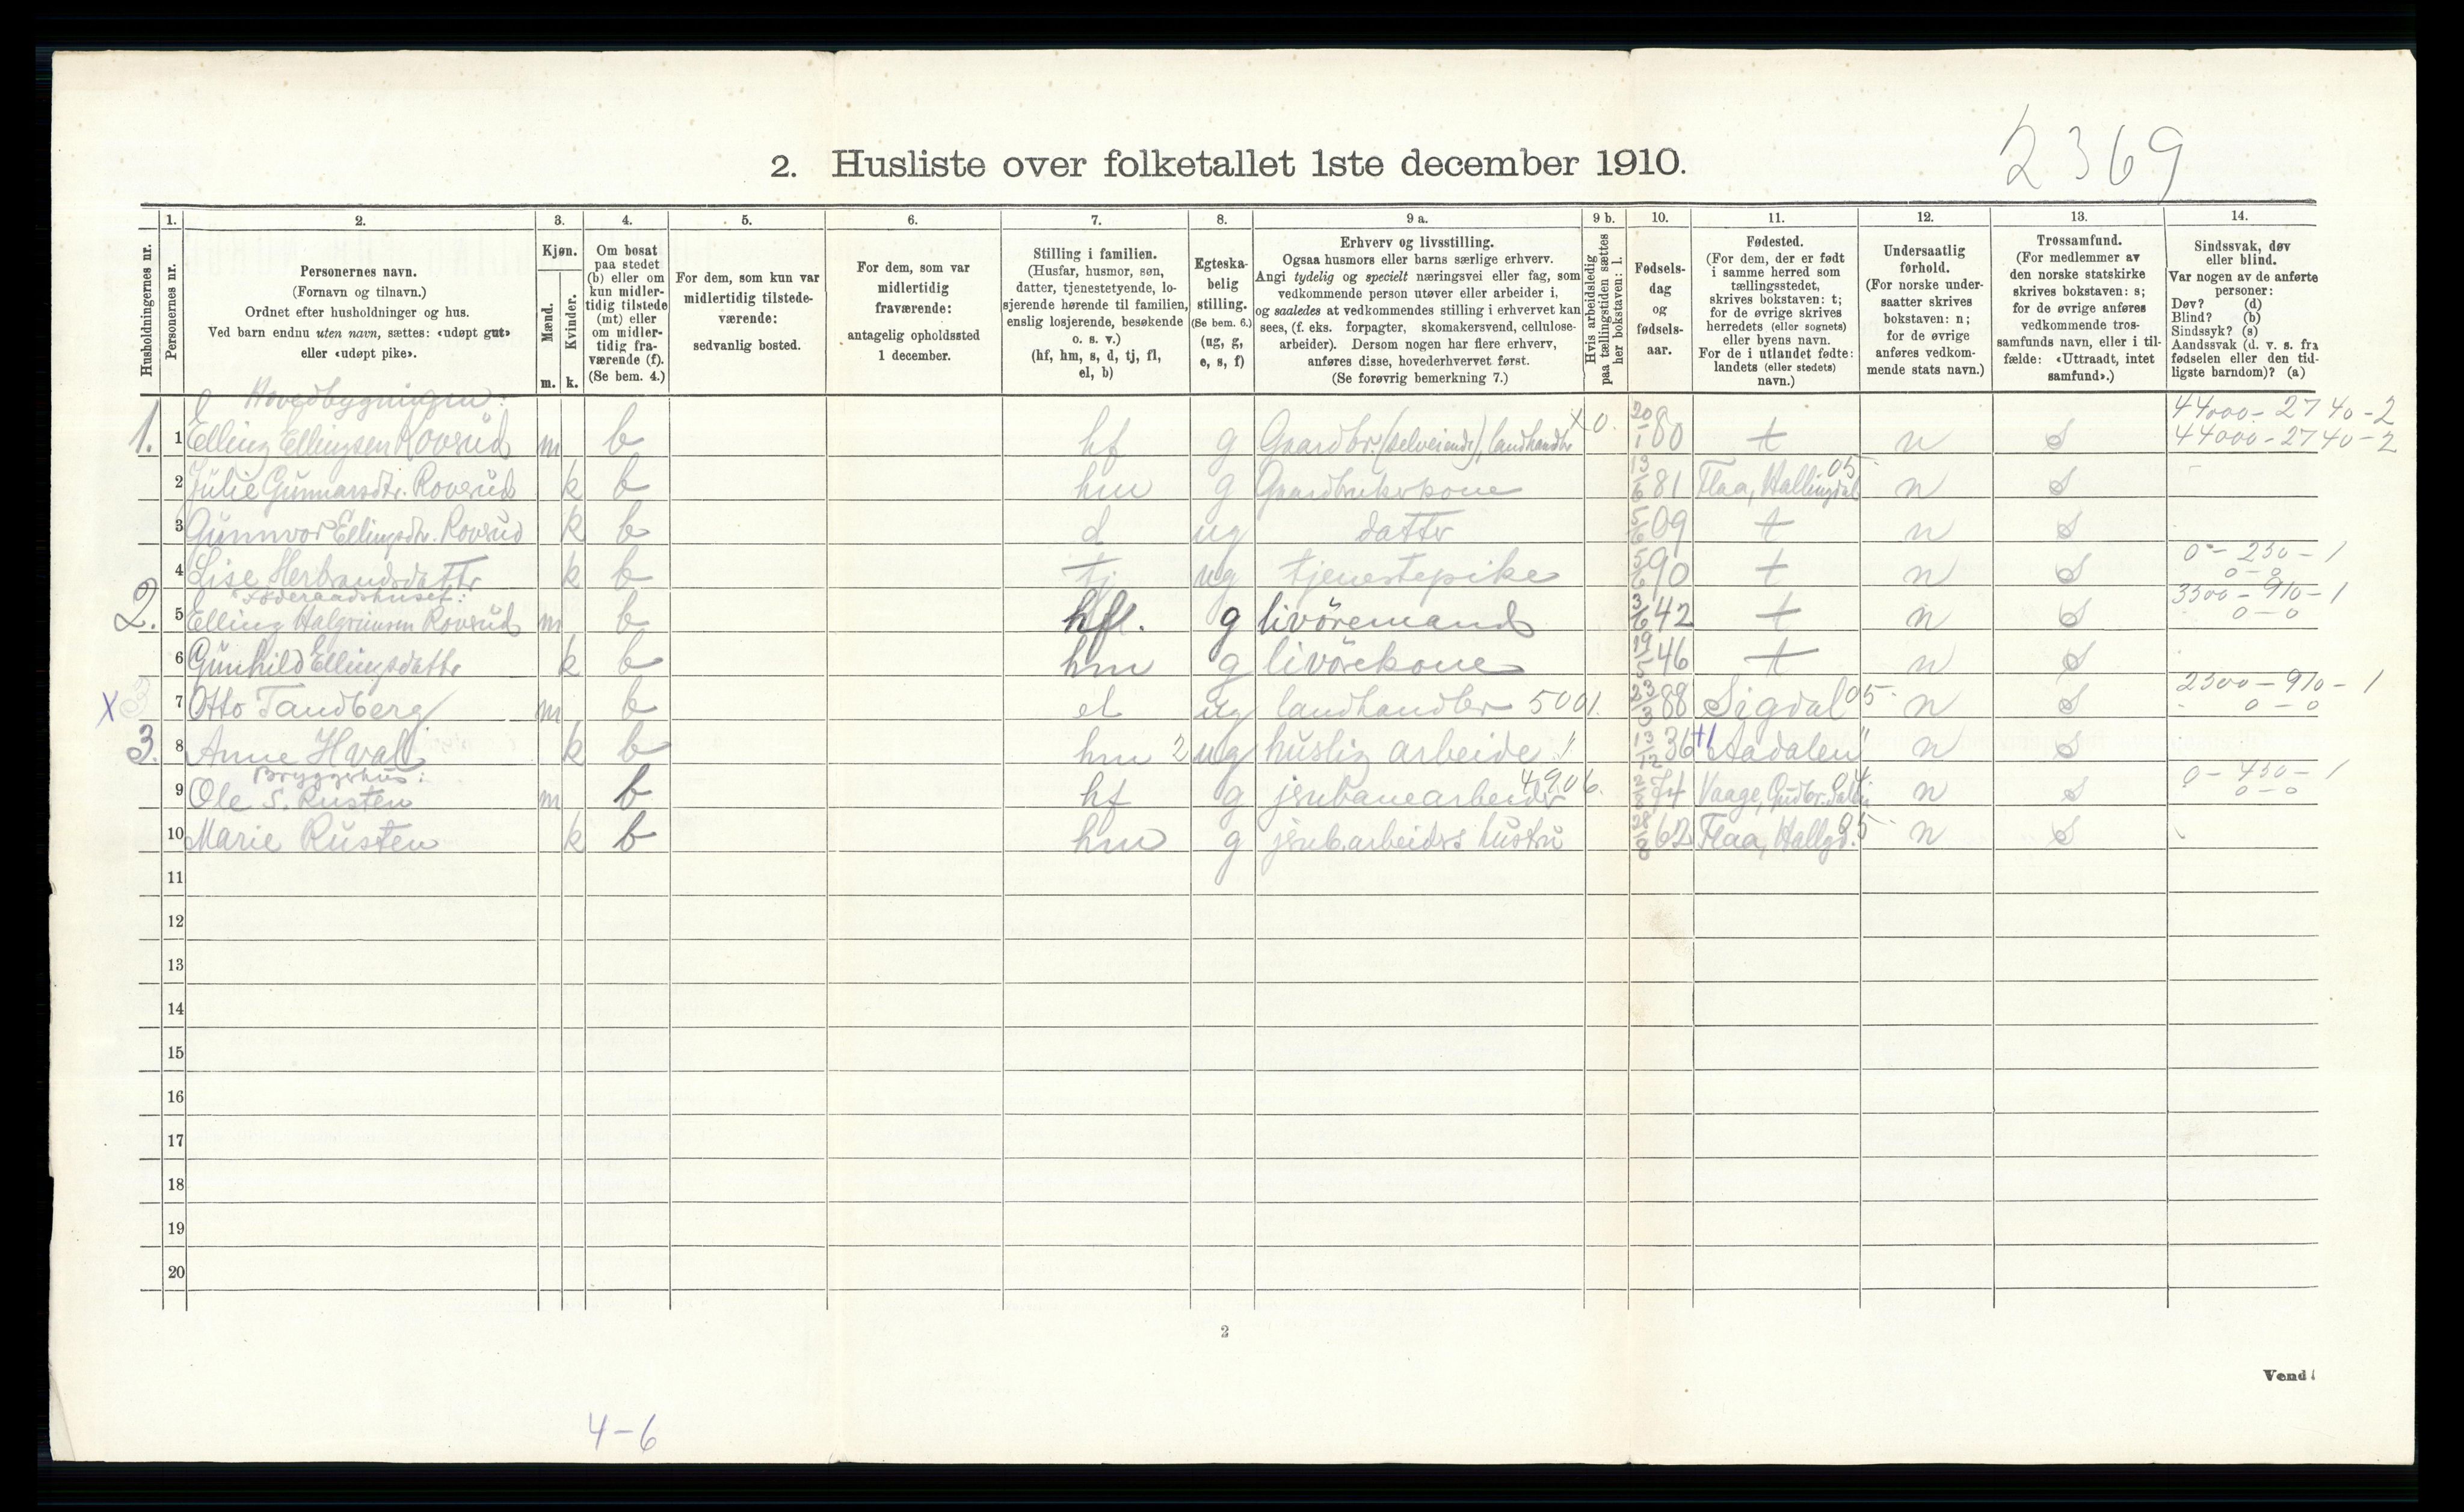 2369
2. Husliste over folketallet 1ste december 1910.
Husholdningernes nr.
1. Personernes nr.
2. Personernes navn.
(Fornavn og tilnavn.)
Ordnet efter husholdninger og hus.
Ved barn endnu uten navn, sættes: «udøpt gut»
eller «udøpt pike».
3. Kjøn.
Mænd. Kvinder.
m. k.
4. Om bosat
paa stedet
(b) eller om
kun midler-
tidig tilstede
(mt) eller
om midler-
tidig fra-
værende (f).
(Se bem. 4.)
5. For dem, som kun var
midlertidig tilstede-
værende:
sedvanlig bosted.
6. For dem, som var
midlertidig
fraværende:
antagelig opholdssted
1 december.
7. Stilling i familien.
(Husfar, husmor, søn,
datter, tjenestetyende, lo-
sjerende hørende til familien,
enslig losjerende, besøkende
o. s. v.)
(hf, hm, s, d, tj, fl,
el, b)
8. Egteska-
belig
stilling.
(Se bem. 6.)
(ug, g,
e, s, f)
9 a. Erhverv og livsstilling.
Ogsaa husmors eller barns særlige erhverv.
Angi tydelig og specielt næringsvei eller fag, som
vedkommende person utøver eller arbeider i,
og saaledes at vedkommendes stilling i erhvervet kan
sees, (f. eks. forpagter, skomakersvend, cellulose-
arbeider). Dersom nogen har flere erhverv,
anføres disse, hovederhvervet først.
(Se forøvrig bemerkning 7.)
9 b. Hvis arbeidsledig
paa tællingstiden sættes
her bokstaven: l.
10. Fødsels-
dag
og
fødsels-
aar.
11. Fødested.
(For dem, der er født
i samme herred som
tællingsstedet,
skrives bokstaven: t;
for de øvrige skrives
herredets (eller sognets)
eller byens navn.
For de i utlandet fødte:
landets (eller stedets)
navn.)
12. Undersaatlig
forhold.
(For norske under-
saatter skrives
bokstaven: n;
for de øvrige
anføres vedkom-
mende stats navn.)
13. Trossamfund.
(For medlemmer av
den norske statskirke
skrives bokstaven: s;
for de øvrige anføres
vedkommende tros-
samfunds navn, eller i til-
fælde: «Uttraadt, intet
samfund».)
14. Sindssvak, døv
eller blind.
Var nogen av de anførte
personer:
Døv? (d)
Blind? (b)
Sindssyk? (s)
Aandssvak (d. v. s. fra
fødselen eller den tid-
ligste barndom)? (a)
Hovedbygningen: 44000 - 2740 - 2
1. 1 Elling Ellingsen Roverud m b hf g Gaardbr. (selveiende), landhandler x0. 20/1 80 t n s 44000 - 2740 - 2
2 Julie Gunnarsdtr. Roverud k b hm g Gaardbrukerkone 13/6 81 Flaa, Hallingdal 05 n s
3 Gunnvor Ellingsdtr. Roverud k b d ug datter 5/6 09 t n s
4 Lise Herbrandsdatter k b tj ug tjenestepike 5/6 90 t n s 0 - 230 - 1
0 - 0
Føderaadshuset:
2. 5 Elling Halgrimsen Roverud m b hf. g livöremand 3/6 42 t n s 3300 - 910 - 1
0 - 0
6 Gunhild Ellingsdatter k b hm g livörekone 19/5 46 t n s
x 3 7 Otto Tandberg m b el ug landhandler 5001. 23/3 88 Sigdal 05 n s 2300 - 910 - 1
0 - 0
3. 8 Anne Hval k b hm 2 ug huslig arbeide 13/12 36 Aadalen n s
Bryggerhus:
9 Ole S. Rusten m b hf g jernbanearbeider 4906. 2/8 74 Vaage, Gudbr.dalen 04 n s 0 - 430 - 1
0 - 0
10 Marie Rusten k b hm g jernb.arbeiders hustru 28/8 62 Flaa, Hallgd. 05 n s
11
12
13
14
15
16
17
18
19
20
2
Vend!
4-6